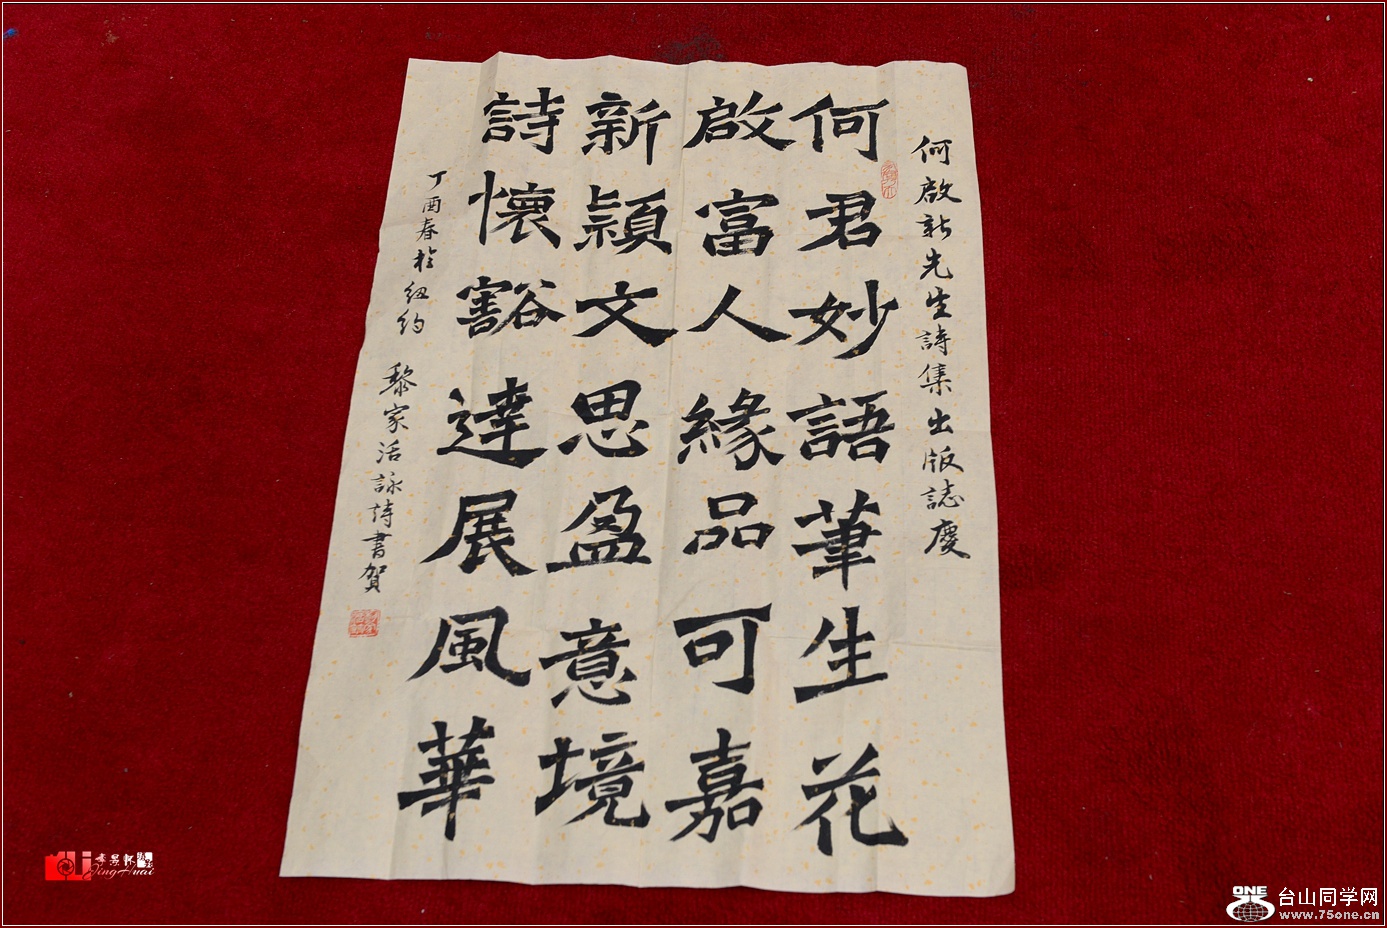 何啟新先生詩集出版誌慶
何君妙語筆生花
啟富人緣品可嘉
新穎文思盈意境
詩懷豁達展風華
丁酉春於紐約
黎家活詠詩書賀
JingHuai
ONE
台山同学网
www.75one.cn